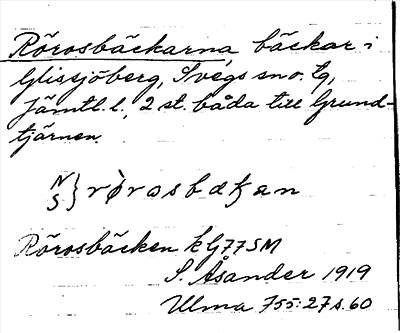 Rörosbäckarna, bäckar i
Glissjöberg, Svegs sn o. tg,
Jämtl. l., 2 st. båda till Grund-
tjärnen.
N
S } rørosbækan
Rörosbäcken kG77SM
S. Åsander 1919
Ulma 755:27 s. 60